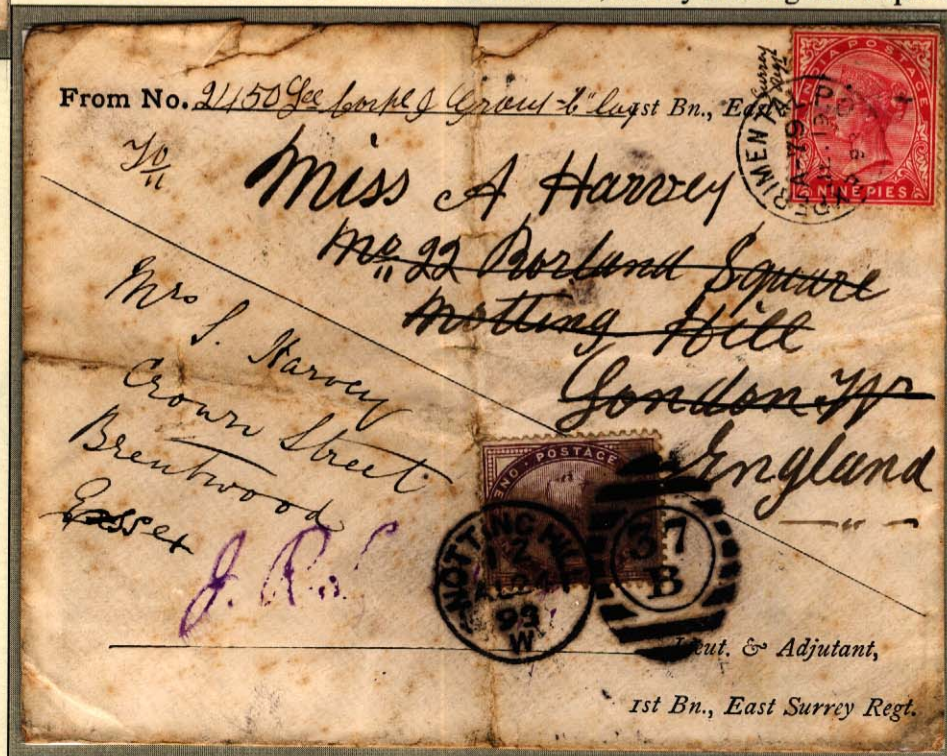 From No. 2450 Lce Corpl J "C" Coy 1st Bn., East Surrey Regt
To
Miss A Harvey
No 22 Square
Notting Hill
London W
England
Mrs S. Harvey
Crown Street
Brentwood
Essex
INDIA POSTAGE
NINE PIES
EXPERIMENTAL P.O.
A-79
POSTAGE
ONE
NOTTING HILL
12
24
93
W
37
B
Lieut. & Adjutant,
1st Bn., East Surrey Regt.